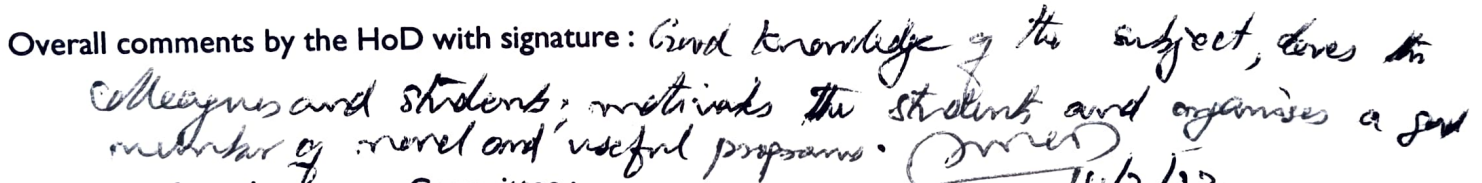 Overall comments by the HoD with signature : Good knowledge of the subject, loves the
colleagues and students; motivates the students and organises a good
number of novel and useful programs.